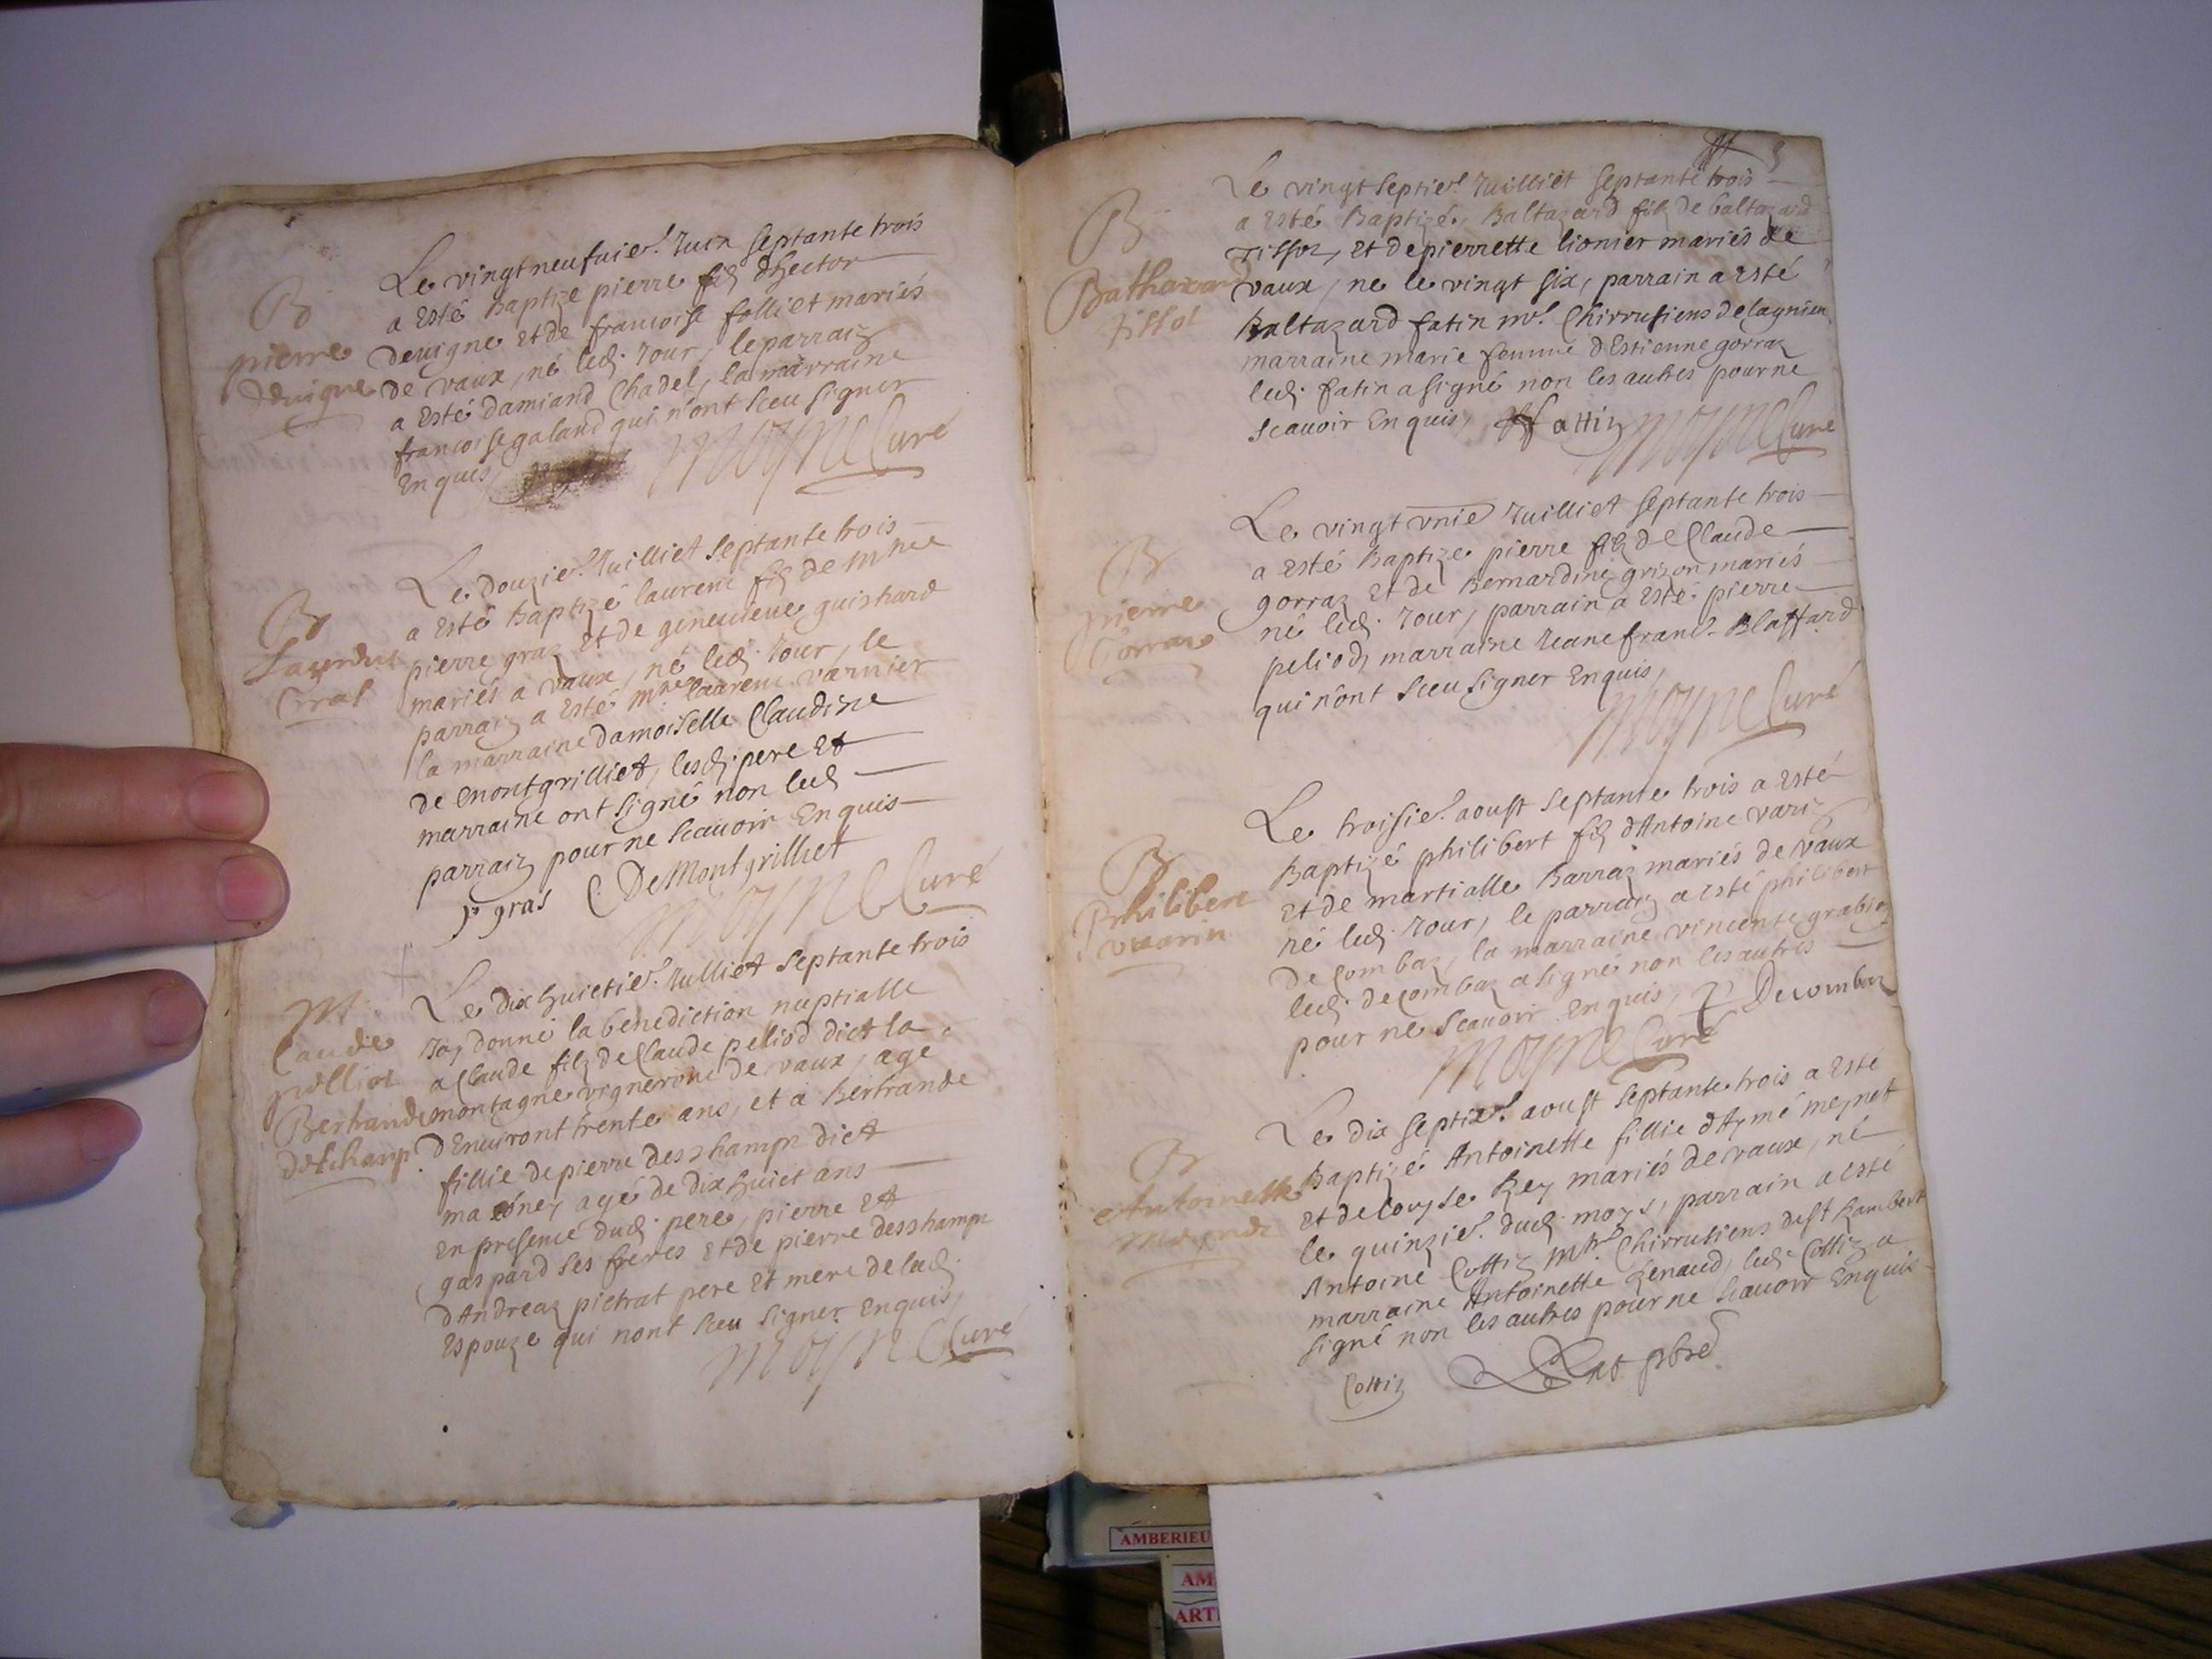 B
pierre
Deuigne
Le vingtneufuie. Juin septante trois
a esté Baptize pierre filz dhector
deuigne et de francoise folliet mariés
de vaux, né led. Jour, le parrain
a esté damiand Chadel, la marraine
francoise galand qui n'ont sceu signer
enquis,
Moyne Curé
B
Laurent
Gras
Le douzie. Juilliet septante trois
a esté Baptizé laurent filz de
pierre graz et de geneuieue guichard
mariés a vaux, né led. Jour, le
parrain a esté laurent varnier
la marraine damoiselle Claudine
de montgrilliet, lesd. pere et
marraine ont signé non led
parrain pour ne scauoir enquis
p gras C DeMontgrilliet
Moyne Curé
M
Claude
pelliot
Bertrande
deschamp
Le dix huictie. Julliet septante trois
Jay donné la benediction nuptialle
a Claude filz de Claude peliod dict la
montagne vigneron de vaux, agé
d'Enuiront trente ans, et a Bertrande
fillie de pierre deschamps dict
agé de dix huict ans
en presence dud. pere, pierre et
gaspard ses freres et de pierre deschamps
d'Andreaz pictrat pere et mere de lad.
espouze qui nont sceu signer enquis,
Moyne Curé
B
Balthazard
Tissot
Le vingt septie. Juilliet septante trois
a esté Baptizé, Baltazard filz de baltazard
Tissot, et de pierrette lionier mariés de
vaux, ne le vingt six, parrain a esté
Baltazard fatin Chirrusiens de lagnieu
marraine marie femme d'Estienne gorraz
led. fatin a signé non les autres pour ne
scauoir enquis, fattin Moyne Curé
B
pierre
Gorraz
Le vingt unie Juilliet septante trois
a esté Baptize pierre filz de Claude
gorraz et de Bernardine grizon mariés
né led. Jour, parrain a esté pierre
peliod, marraine Jeane franc. Blaffard
qui n'ont sceu signer enquis,
Moyne Curé
B
Philibert
varin
Le troisie. aoust septante trois a esté
Baptizé philibert filz d'Antoine varin
et de martialle Barraz mariés de vaux
né led. Jour, le parrain a esté philibert
decombaz, la marraine vincente
led. decombaz a signé non les autres
pour ne scauoir enquis, P Decombaz
Moyne Curé
B
Antoinette
Le dix septie. aoust septante trois a esté
Baptizé Antoinette fillie d'Aymé meynet
et de louyse Rey mariés de vaux, né
le quinzie. dud. moys, parrain a esté
Antoine Cottin Chirrusiens de st Rambert
marraine Antoinette Renaud, led. Cottin a
signé non les autres pour ne scauoir enquis
Cottin
AMBERIEU
AM
ART